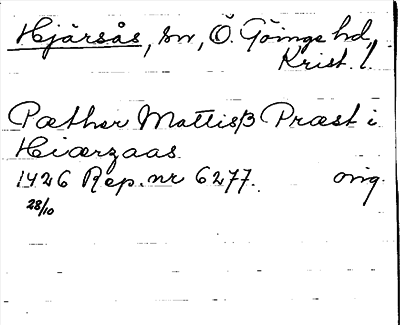 Hjärsås, sn, Ö. Göinge hd,
Krist. l.
Pæther Mattisβ Præst i
Hiærzaas
1426 Rep. nr 6277. orig.
28/10